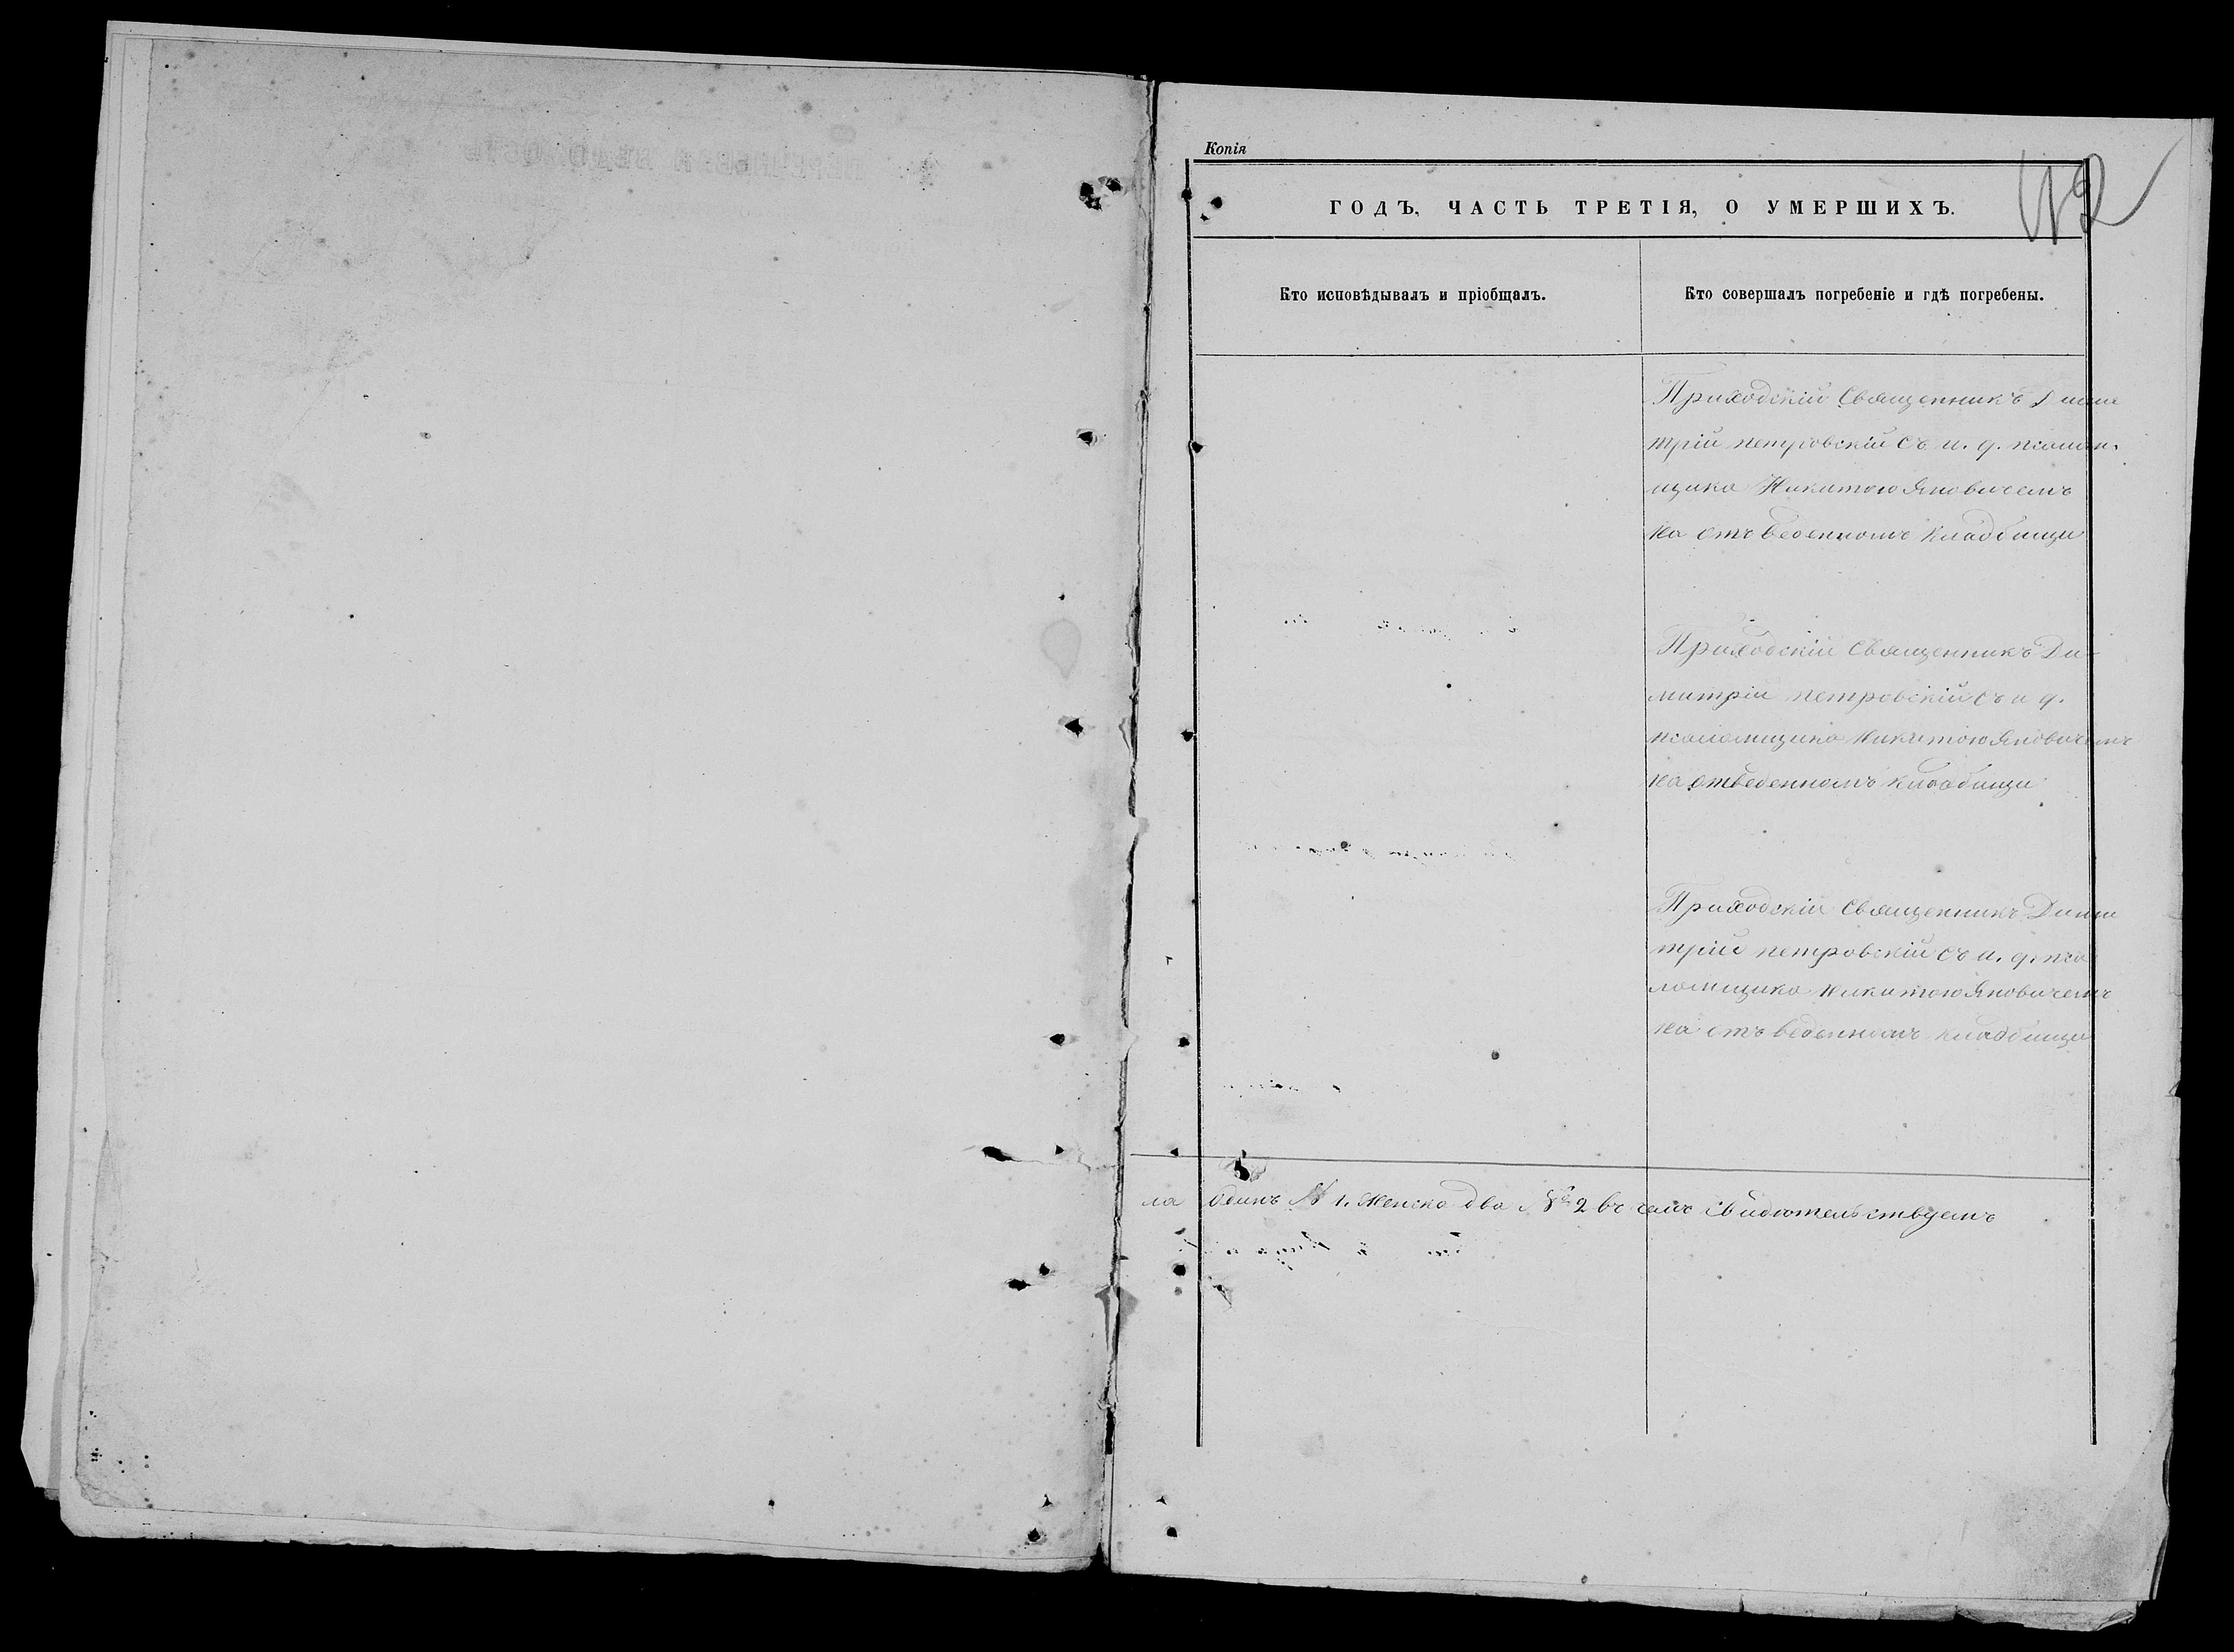 Копія
ГОДЪ, ЧАСТЬ ТРЕТІЯ, О УМЕРШИХЪ.
42
Кто исповѣдывалъ и пріобщалъ.
Кто совершалъ погребеніе и гдѣ погребены.
Приходскій Священникъ Дими
трій петровскій съ и. д. псалом.
щика Никитою Яновичемъ
на отъведенномъ кладбищи
Приходскій Священникъ Ди-
митрій петровскій съ и д.
псаломщика Никитою Яновичемъ
на отведенномъ кладбищи
Приходскій Священникъ Дими
трій петровскій съ и. д. пса
ломщика Никитою Яновичемъ
на отъведенномъ кладбищи
ла одинъ № 1. женска два № 2 въ чемъ свидютельствуемъ